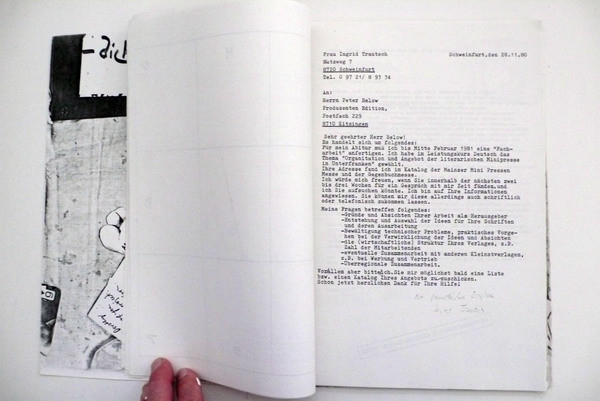 - dich
Frau Ingrid Trautsch Schweinfurt, den 28.11.80
Mutzweg 7
8720 Schweinfurt
Tel. 0 97 21/ 8 93 34
An:
Herrn Peter Below
Produzenten Edition,
Postfach 229
8710 Kitzingen
Sehr geehrter Herr Below!
Es handelt sich um folgendes:
Für mein Abitur muß ich bis Mitte Februar 1981 eine "Fach-
arbeit" anfertigen. Ich habe im Leistungskurs Deutsch das
Thema "Organitation und Angebot der literarischen Minipresse
in Unterfranken" gewählt.
Ihre Adresse fand ich im Katalog der Mainzer Mini Pressen
Messe und der Gegenbuchmesse.
Ich würde mich freuen, wenn Sie innerhalb der nächsten zwei
bis drei Wochen für ein Gespräch mit mir Zeit fänden,und
ich Sie aufsuchen könnte. Ich bin auf Ihre Informationen
angewiesen. Sie können mir diese allerdings auch schriftlich
oder telefonisch zukommen lassen.
Meine Fragen betreffen folgendes:
-Gründe und Absichten Ihrer Arbeit als Herausgeber
-Entstehung und Auswahl der Ideen für Ihre Schriften
und deren Ausarbeitung
-Bewältigung technischer Probleme, praktisches Vorge-
hen bei der Verwirklichung der Ideen und Absichten
-die (wirtschaftliche) Struktur Ihres Verlages, z.B.
Zahl der Mitarbeitenden
-eventuelle Zusammenarbeit mit anderen Kleinstverlagen,
z.B. bei Werbung und Vertrieb
-Überregionale Zusammenarbeit.
Vor allem aber bitte ich Sie mir möglichst bald eine Liste
bzw. einen Katalog Ihres Angebots zu zuschicken.
Schon jetzt herzlichen Dank für Ihre Hilfe!